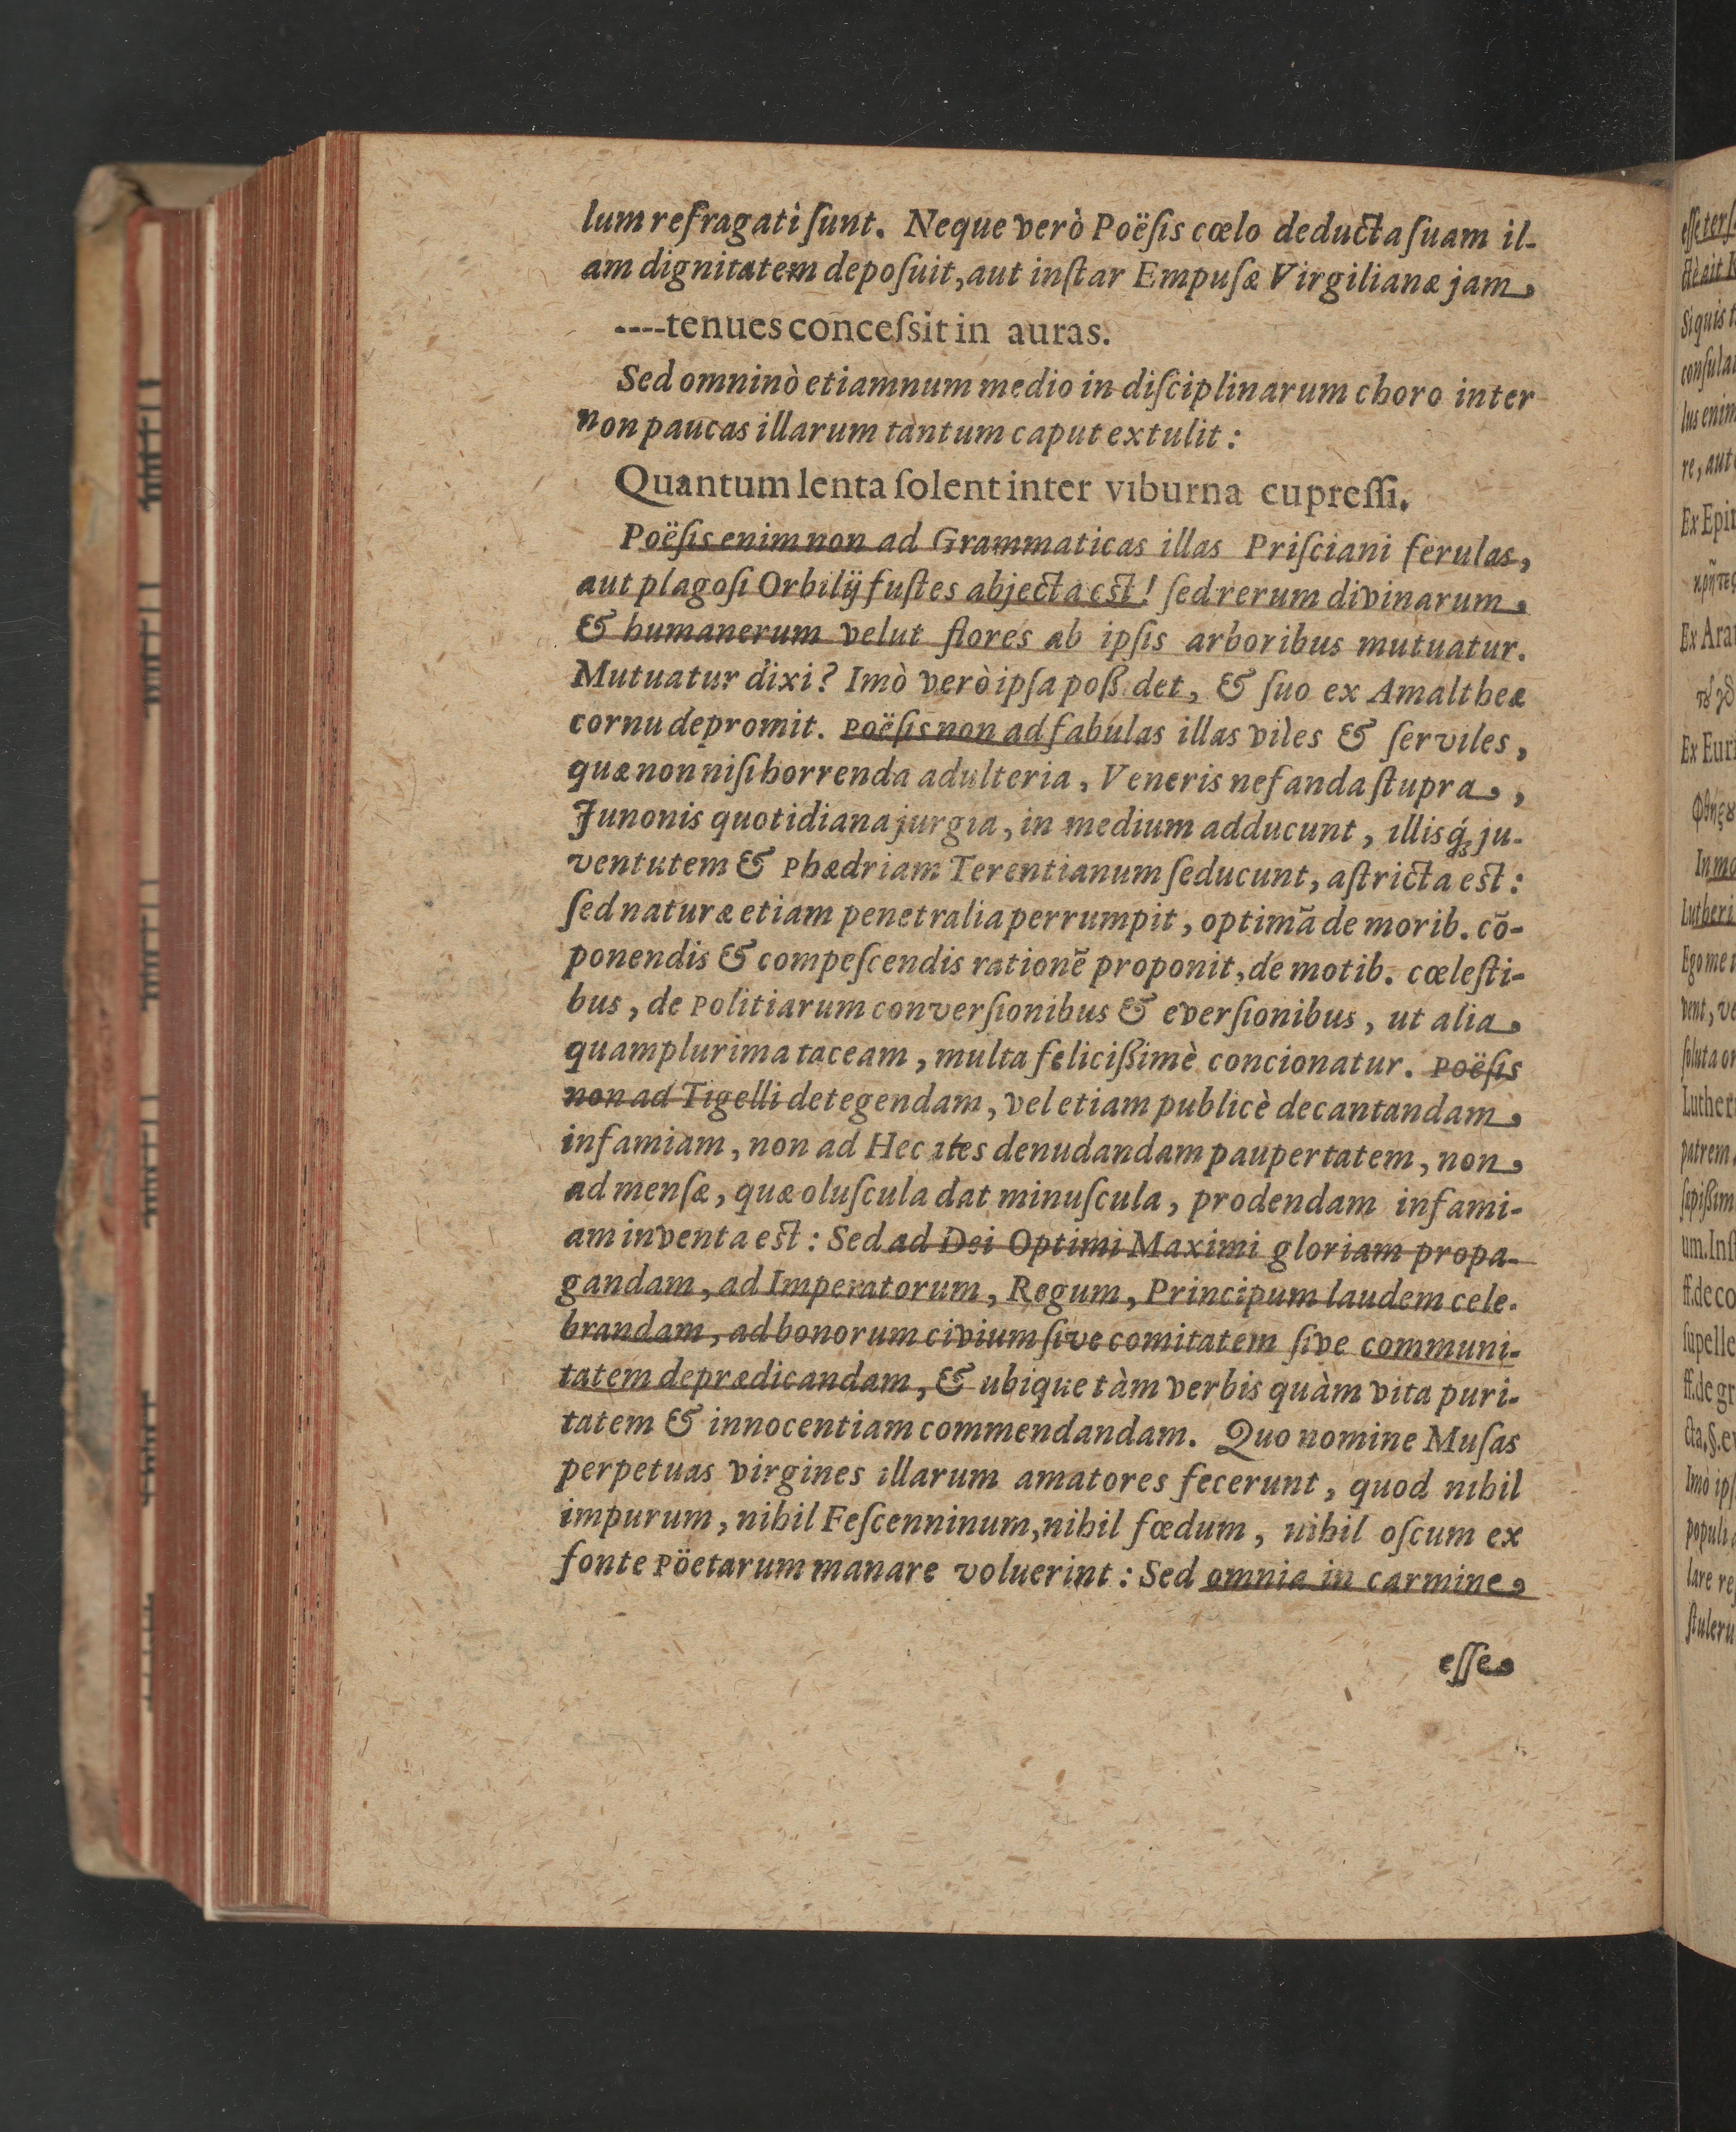 lum refragati sunt. Neque verò Poësis cœlo deducta suam il-
am dignitatem deposuit, aut instar Empusæ Virgilianæ jam
----tenues concessit in auras.
Sed omninò etiamnum medio in disciplinarum choro inter
non paucas illarum tantum caput extulit:
Quantum lenta solent inter viburna cupressi.
Poësis enim non ad Grammaticas illas Prisciani ferulas,
aut plagosi Orbilij fustes abjecta est! sed rerum divinarum
& humanerum velut flores ab ipsis arboribus mutuatur.
Mutuatur dixi? Imò verò ipsa poß det, & suo ex Amaltheæ
cornu depromit. Poësis non ad fabulas illas viles & serviles,
quæ non nisi horrenda adulteria, Veneris nefanda stupra,
Junonis quotidiana jurgia, in medium adducunt, illisq́; ju-
ventutem & Phædriam Terentianum seducunt, astricta est:
sed naturæ etiam penetralia perrumpit, optimā de morib. cō-
ponendis & compescendis rationē proponit, de motib. cœlesti-
bus, de Politiarum conversionibus & eversionibus, ut alia
quamplurima taceam, multa felicißimè concionatur. Poësis
non ad Tigelli detegendam, vel etiam publicè decantandam
infamiam, non ad Hec ites denudandam paupertatem, non
ad mensæ, quæ oluscula dat minuscula, prodendam infami-
am inventa est: Sed ad Dei Optimi Maximi gloriam propa-
gandam, ad Imperatorum, Regum, Principum laudem cele-
brandam, ad bonorum civium sive comitatem sive communi-
tatem deprædicandam, & ubique tàm verbis quàm vita puri-
tatem & innocentiam commendandam. Quo nomine Musas
perpetuas virgines illarum amatores fecerunt, quod nihil
impurum, nihil Fescenninum, nihil fœdum, nihil oscum ex
fonte Pöetarum manare voluerint: Sed omnia in carmine
esse